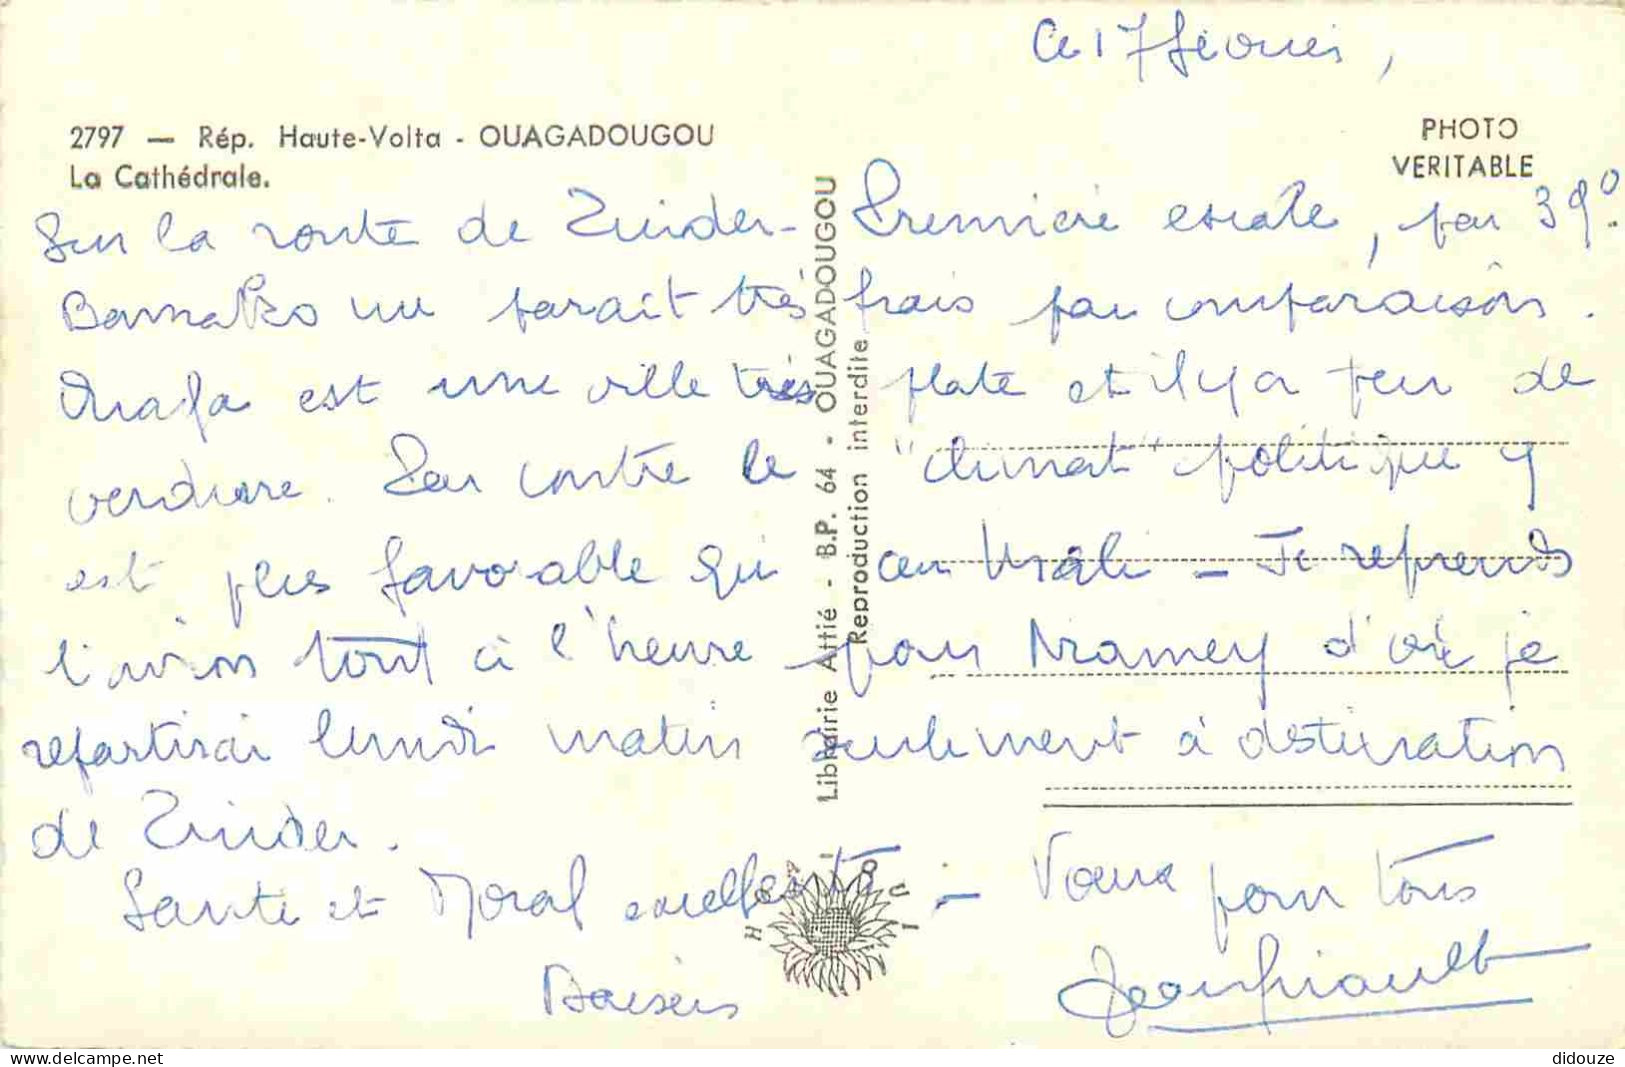 Ce 17 février,
2797 — Rép. Haute-Volta - OUAGADOUGOU
La Cathédrale.
PHOTO
VERITABLE
Sur la route de Zinder - Première escale, par 39°.
Bamako me parait très frais par comparaison.
Ouaga est une ville très plate et il y a peu de
verdure. Par contre le "climat" politique y
est plus favorable qu'au Mali - Je reprends
l'avion tout à l'heure pour Niamey d'où je
repartirai lundi matin seulement à destination
de Zinder.
Santé et Moral excellents - Vœux pour tous
Baisers
Librairie Attié - B.P. 64 - OUAGADOUGOU
Reproduction interdite
HOA-QUI
delcampe.net
didouze